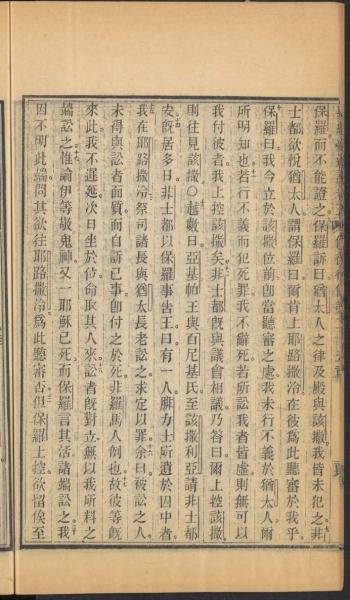 保羅而不能證之保羅訴曰猶太人之律及殿與該撒我皆未犯之非
士都欲悅猶太人謂保羅曰爾肯上耶路撒冷在彼爲此聽審於我乎
保羅曰我今立於該撒位前即當聽審之處我未行不義於猶太人爾
所明知也若行不義而犯死罪我不辭死若所訟我者皆虛則無可以
我付彼者我上控該撒矣非士都旣與議會相議乃答曰爾上控該撒
則往見該撒〇越數日亞基帕王與百尼基氏至該撒利亞請非士都
安旣居多日非士都以保羅事告王曰有一人腓力士所遺於囚中者
我在耶路撒冷祭司諸長與猶太長老訟之求定以罪余曰被訟之人
未得與訟者面質而自訴己事卽付之於死非羅馬人例也故彼等旣
來此我不遲延次日坐於位命取其人來訟者旣對立無以我所料之
端訟之惟論伊等敬鬼神又一耶穌已死而保羅言其活諸端訟之我
因不明此端問其欲往耶路撒冷爲此聽審否但保羅上控欲留俟至